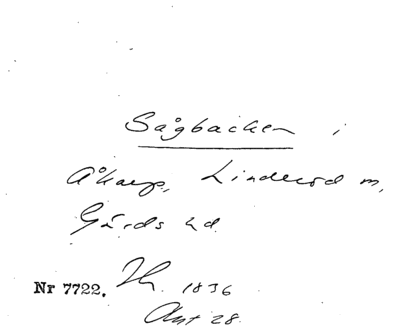 Sågbacken i
Åkarp, Linderöd m,
Gärds hd.
Nr 7722. Th. 1836
Akt 28.